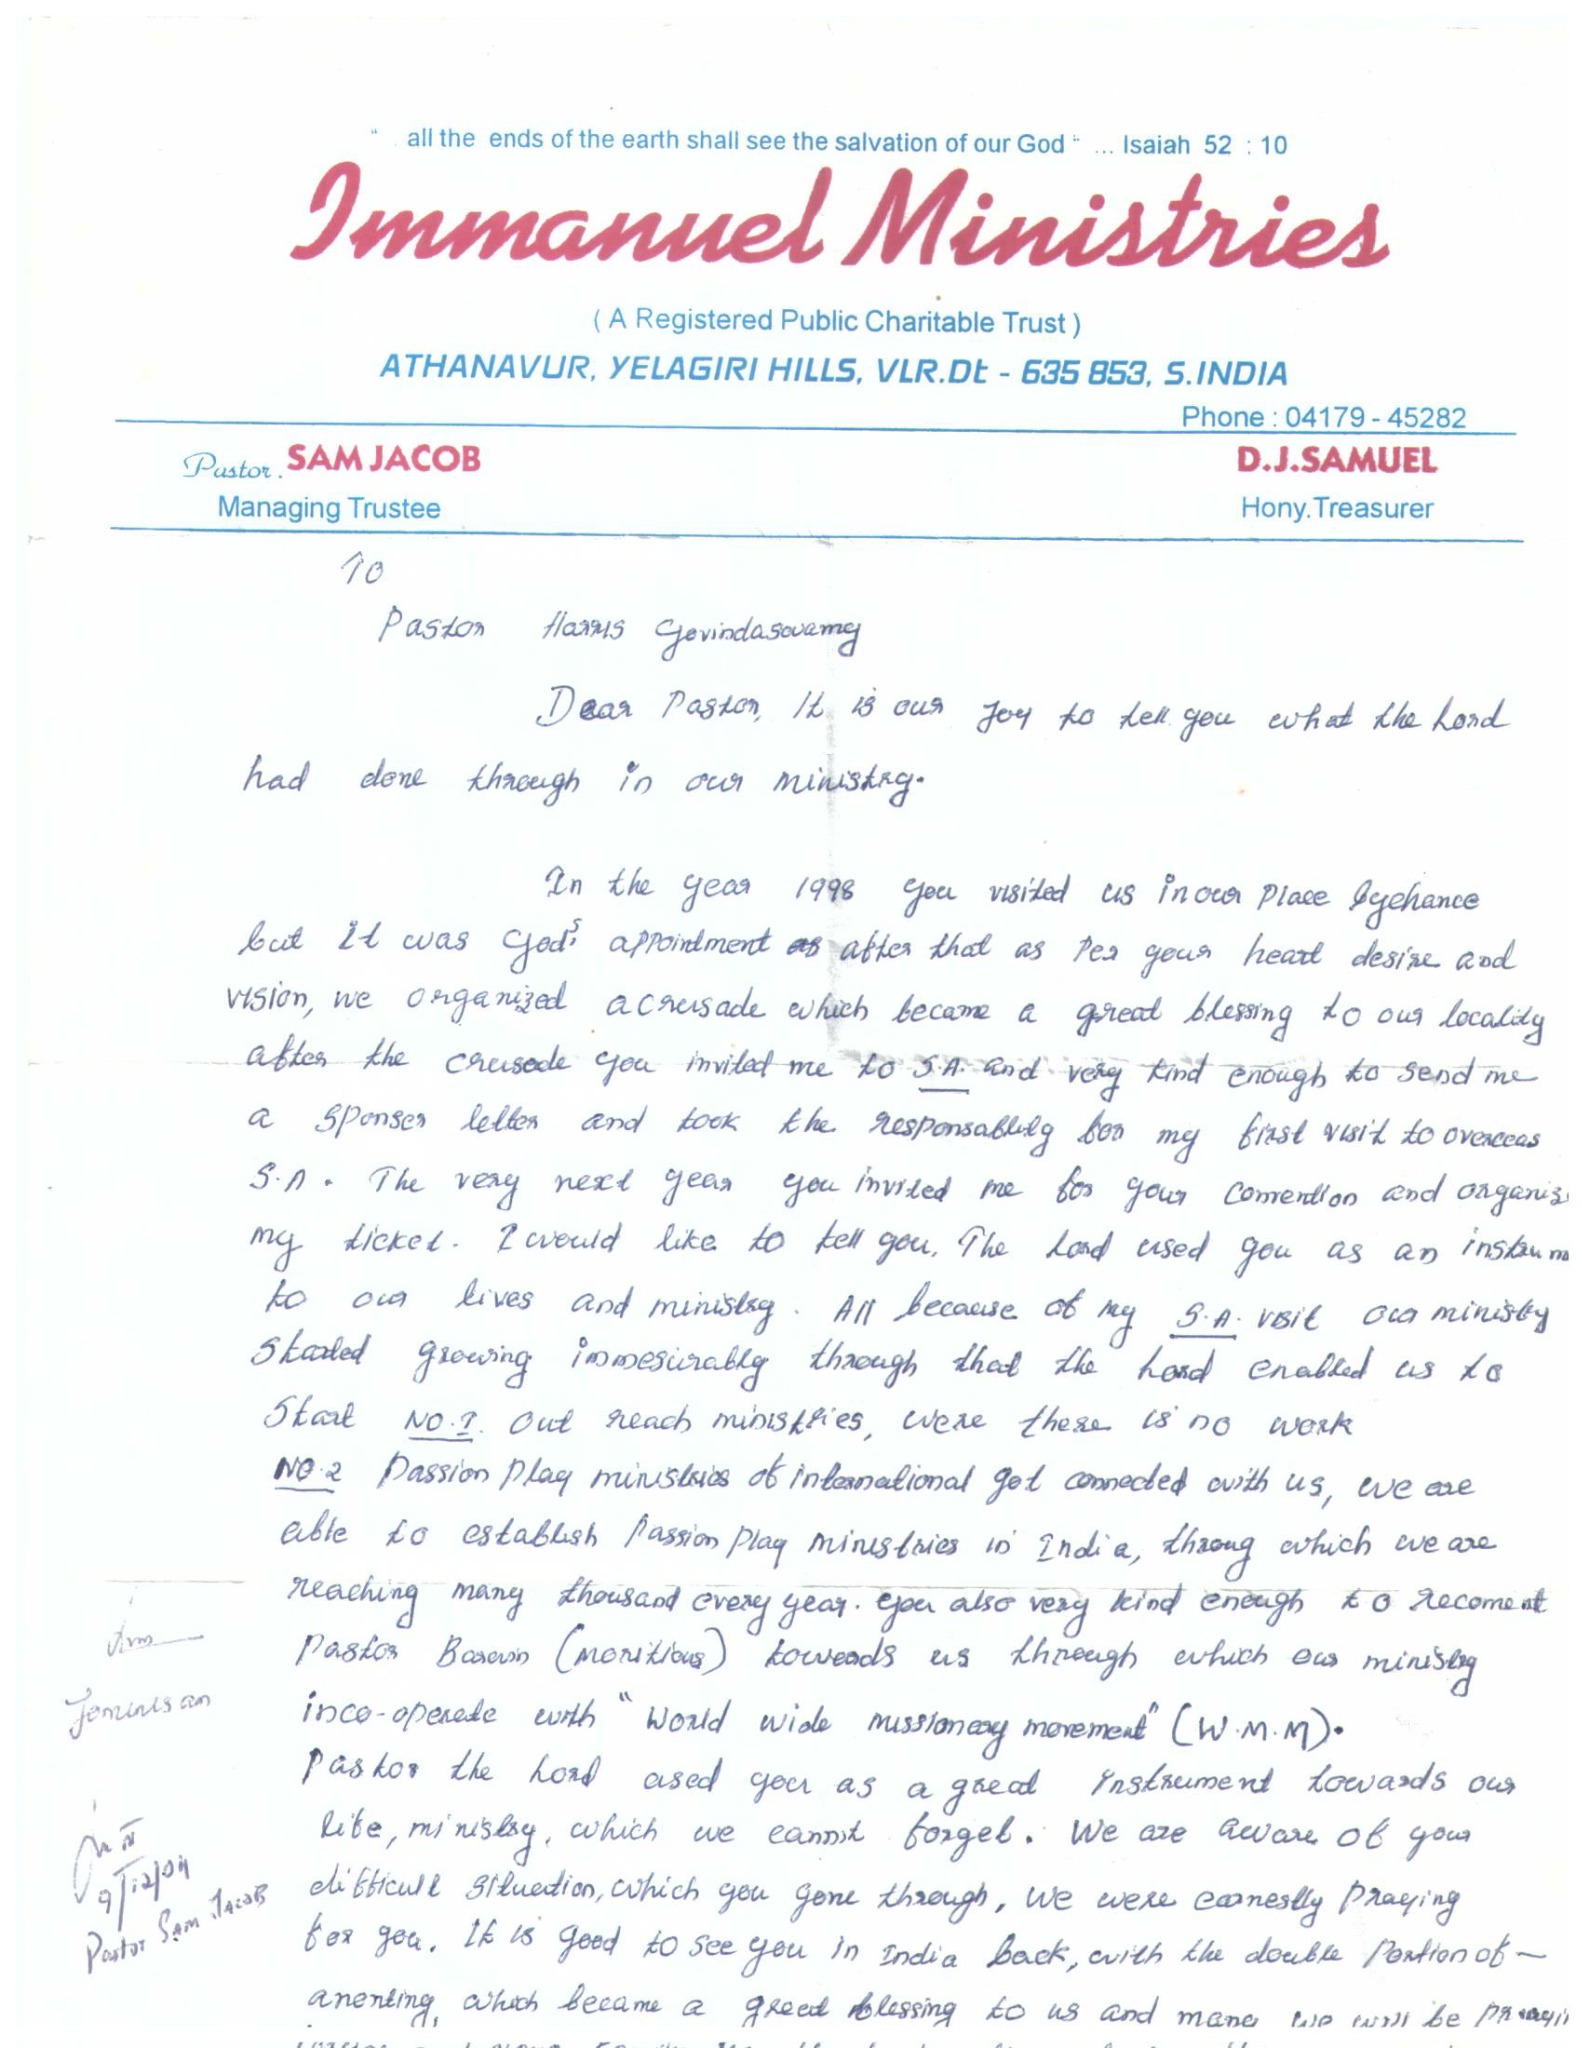 " all the ends of the earth shall see the salvation of our God " ... Isaiah 52 : 10
Immanuel Ministries
( A Registered Public Charitable Trust )
ATHANAVUR, YELAGIRI HILLS, VLR.Dt - 635 853, S.INDIA
Phone : 04179 - 45282
Pastor. SAM JACOB
D.J.SAMUEL
Managing Trustee
Hony.Treasurer
To
Pastor Harris Govindaswamy
Dear Pastor, It is our Joy to tell you what the Lord
had done through in our ministry.
In the year 1998 you visited us in our place bychance
but it was God's appointment as after that as per your heart desire and
vision, we organized a crusade which became a great blessing to our locality
after the crusade you invited me to S.A. and very kind enough to send me
a sponser letter and took the responsablity for my first visit to overceas
S.A. The very next year you invited me for your convention and organiz
my ticket. I would like to tell you, The Lord used you as an instrum
to our lives and ministry. All because of my S.A. visit our ministry
Started growing immesurably through that the Lord enabled us to
Start NO.1. Out reach ministries, were there is no work
NO.2 Passion Play ministries of international got connected with us, we are
able to establish Passion Play ministries in India, throug which we are
reaching many thousand every year. you also very kind enough to recoment
Pastor (Moritious) towards us through which our ministry
inco-operate with "World wide missionary movement" (W.M.M).
Pastor the Lord used you as a great instrument towards our
life, ministry, which we cannot forget. We are aware of your
difficult situation, which you gone through, we were earnestly praying
for you. It is good to see you in India back, with the double Portion of —
anenting, which became a great blessing to us and many we will be prayi
9/12/04
Pastor SAM JACOB